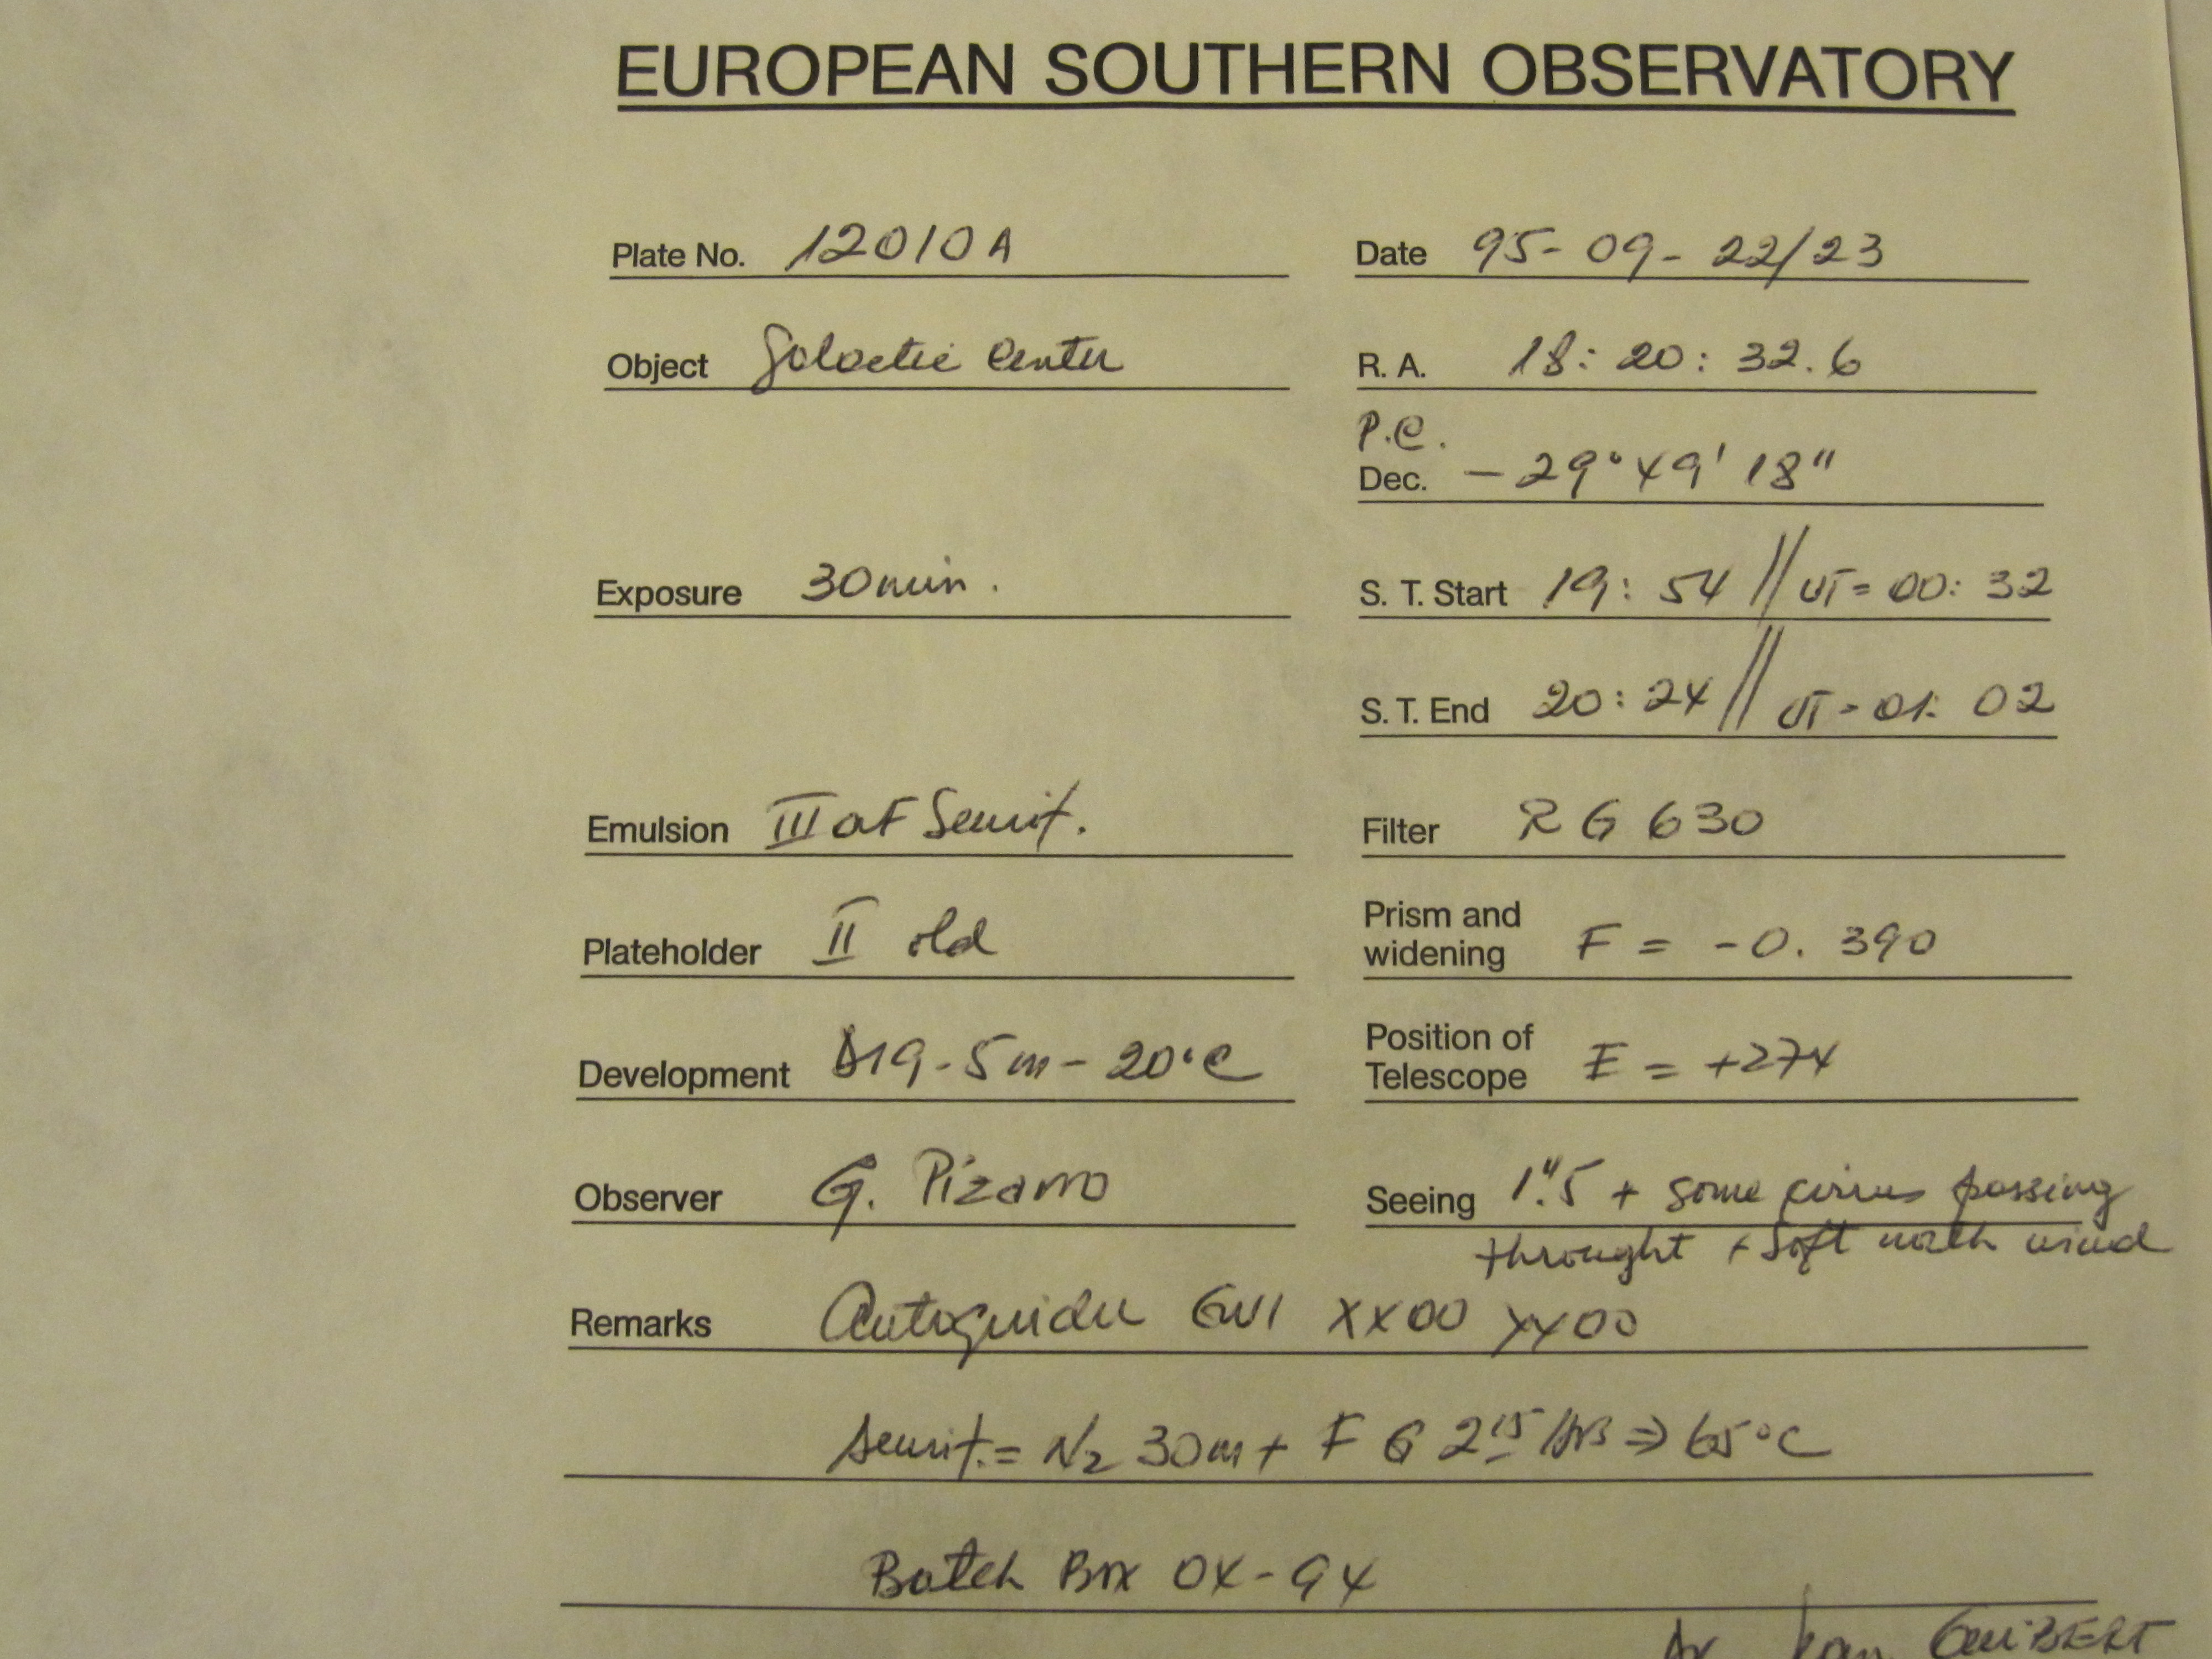 EUROPEAN SOUTHERN OBSERVATORY
Plate No. 12010A
Date 95-09-22/23
Object Galactic Center
R. A. 18: 20: 32.6
P.C.
Dec. -29°49' 18"
Exposure 30min.
S. T. Start 19: 54 // UT= 00: 32
S. T. End 20: 24 // UT= 01: 02
Emulsion III aF Sensit.
Filter RG 630
Plateholder II old
Prism and
widening F = -0.390
Development D19-5m-20°C
Position of
Telescope E = +274
Observer G. Pizarro
Seeing 1."5 + some cirrus passing
throught + soft north wind
Remarks Autoguider XX00 YY00
Sensit.= N2 30m + F G 2 15 Hrs ⇒ 65°C
Batch Box 04-94
GUIBERT